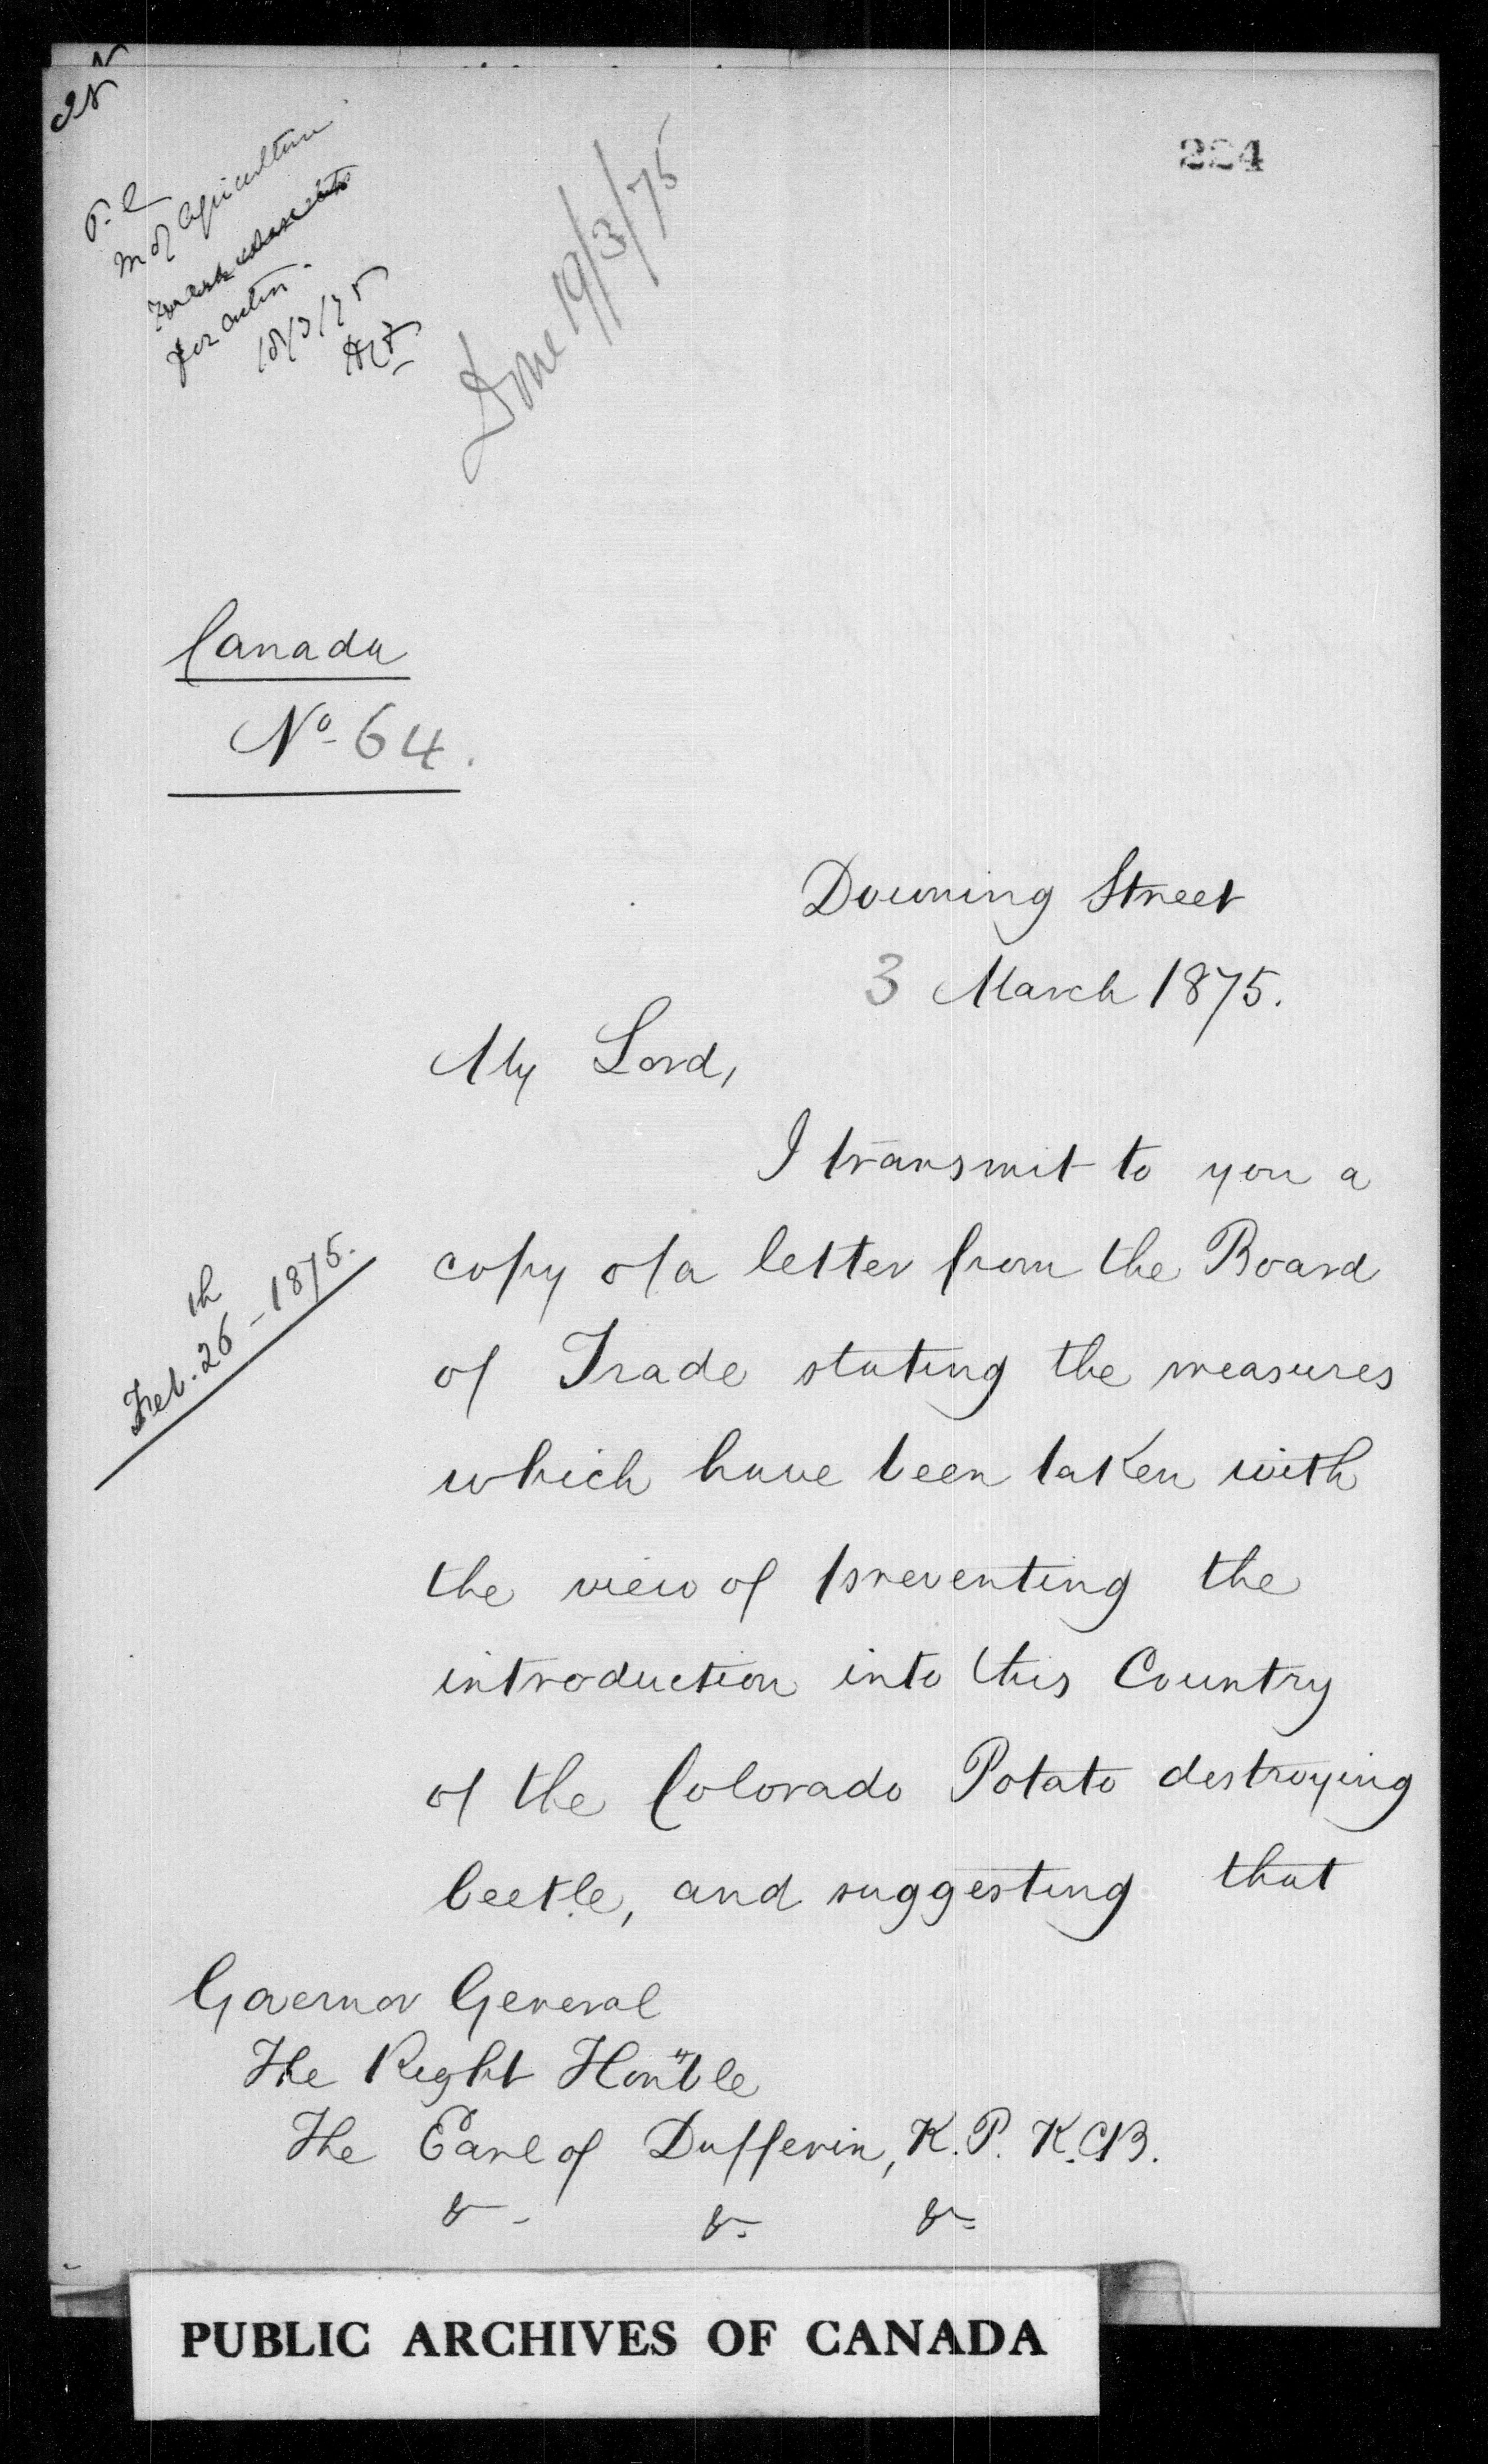 224
P.C
M of Agriculture
for action.
18/3/75
Done 19/3/75
Canada
No. 64.
Downing Street
3 March 1875.
My Lord,
I transmit to you a
copy of a letter from the Board
of Trade stating the measures
which have been taken with
the view of preventing the
introduction into this Country
of the Colorado Potato destroying
beetle, and suggesting that
Feb. 26th - 1875.
Governor General
The Right Hon"ble
The Earl of Dufferin, K.P. K.C.B.
&- &- &-
PUBLIC ARCHIVES OF CANADA